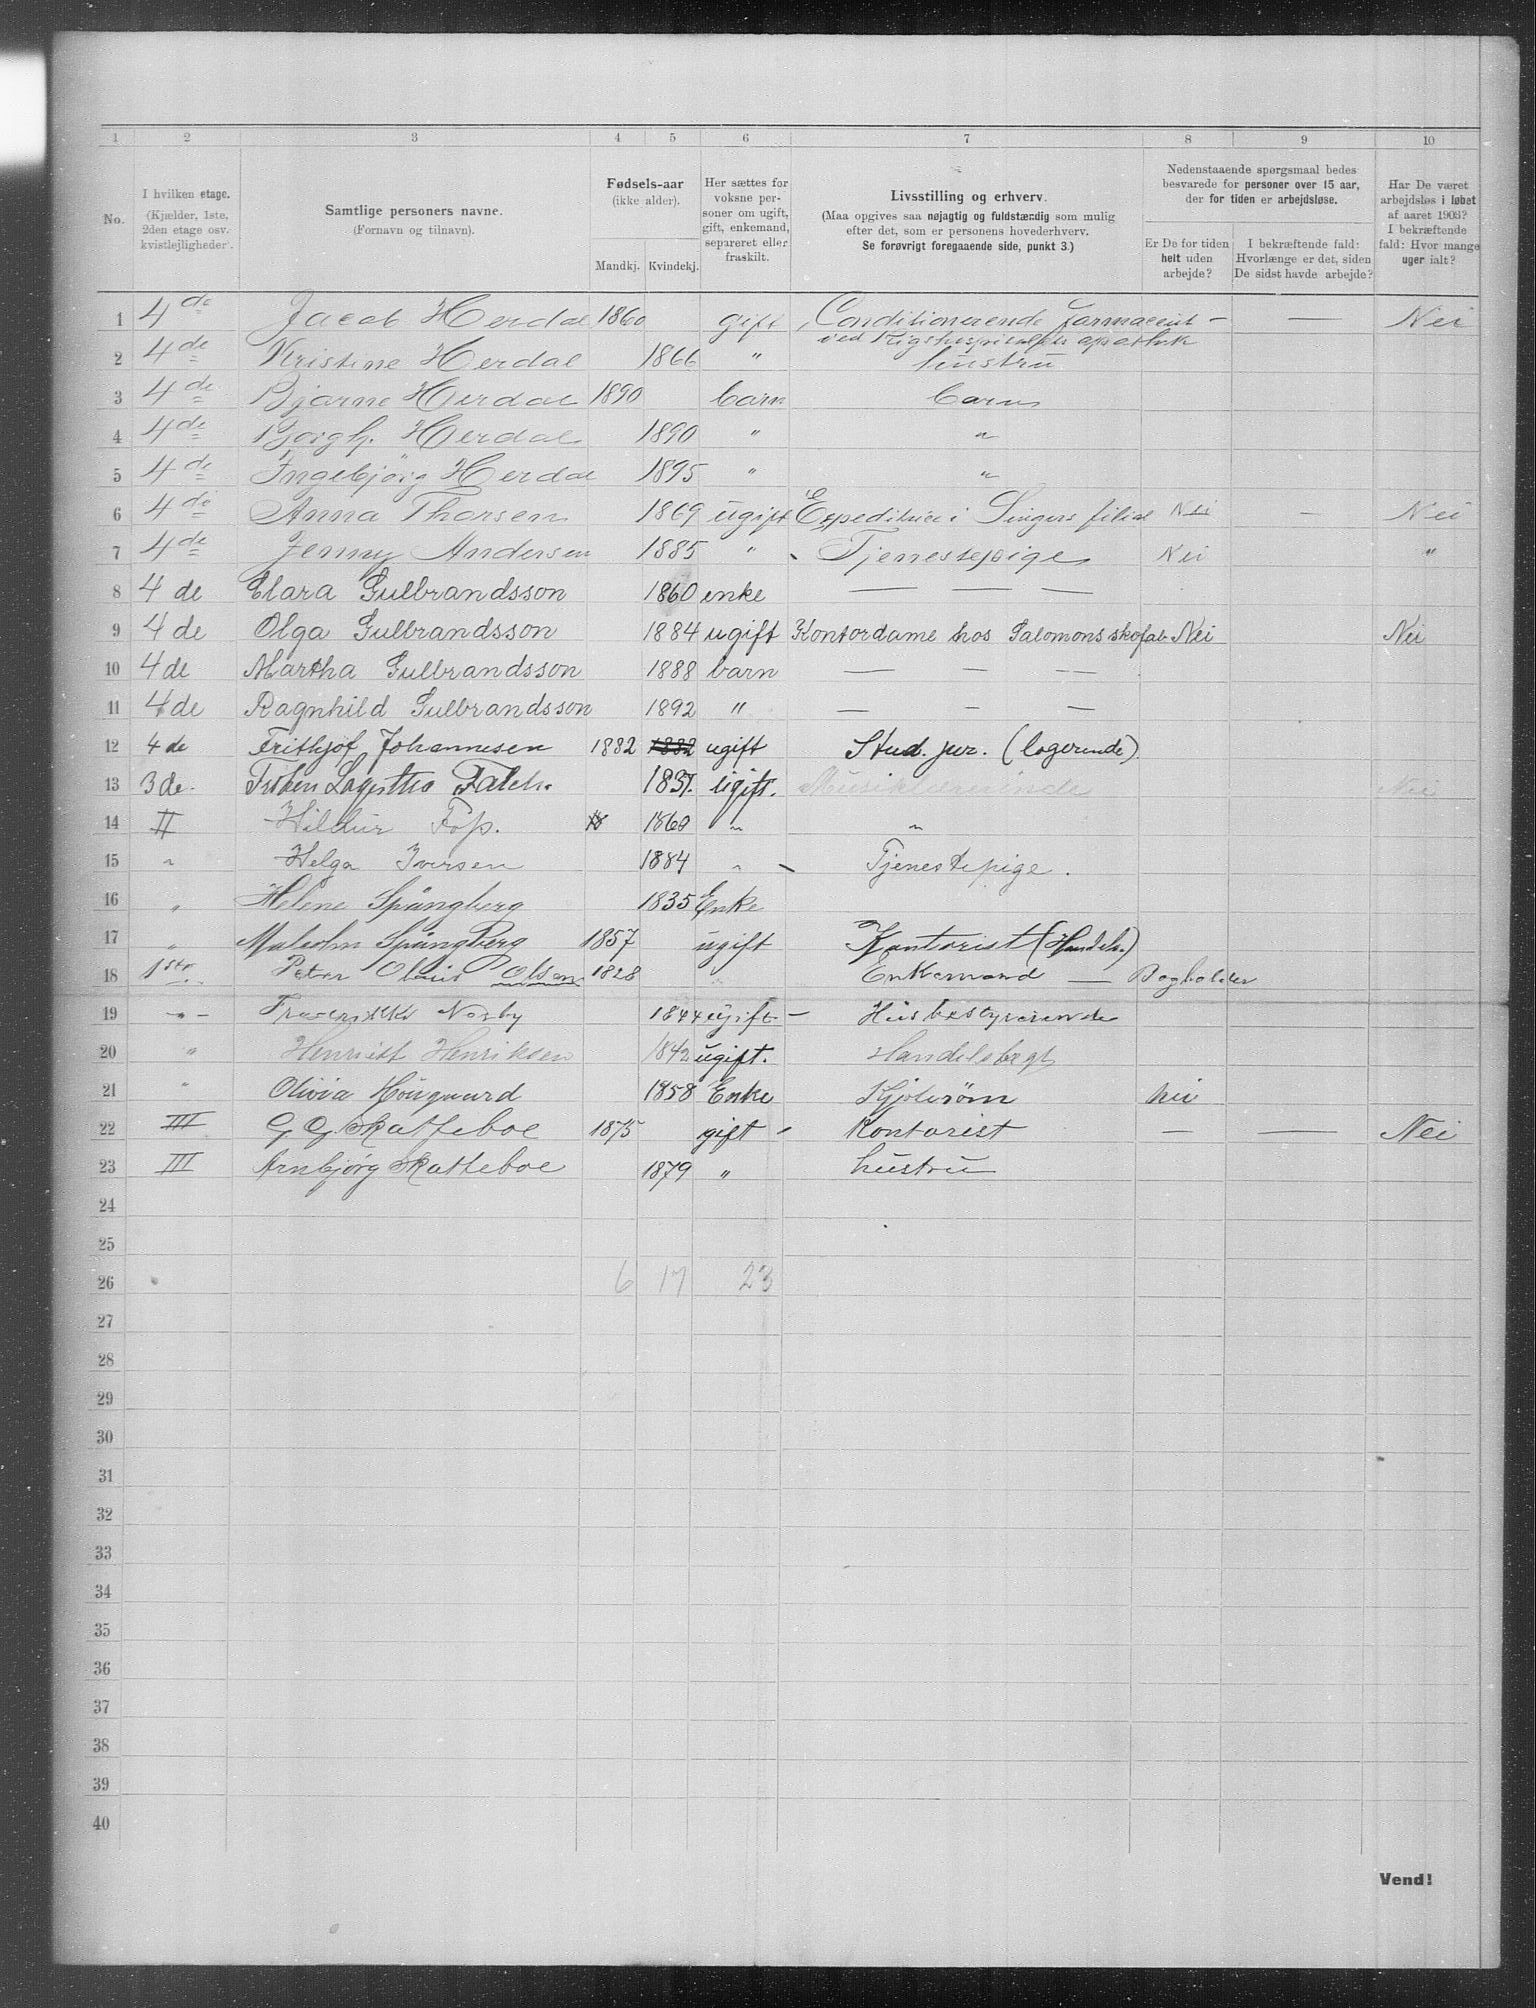 1 2 3 4 5 6 7 8 9 10
No.
I hvilken etage.
(Kjælder, 1ste,
2den etage osv.
kvistlejligheder).
Samtlige personers navne.
(Fornavn og tilnavn).
Fødsels-aar
(ikke alder).
Mandkj. Kvindekj.
Her sættes for
voksne per-
soner om ugift,
gift, enkemand,
separeret eller
fraskilt.
Livsstilling og erhverv.
(Maa opgives saa nøjagtig og fuldstændig som mulig
efter det, som er personens hovederhverv.
Se forøvrigt foregaaende side, punkt 3.)
Nedenstaaende spørgsmaal bedes
besvarede for personer over 15 aar,
der for tiden er arbejdsløse.
Er De for tiden
helt uden
arbejde?
I bekræftende fald:
Hvorlænge er det, siden
De sidst havde arbejde?
Har De været
arbejdsløs i løbet
af aaret 1903?
I bekræftende
fald: Hvor mange
uger ialt?
1 4de Jacob Herdal 1860 gift Conditionerende farmaceut — — Nei
ved Rigshospitalets apothek
2 4de Kristine Herdal 1866 " hustru
3 4de Bjarne Herdal 1890 barn barn
4 4de Borgh. Herdal 1890 " "
5 4de Ingebjörg Herdal 1895 " "
6 4de Anna Thorsen 1869 ugift Expeditrice i Singers filial Nei — Nei
7 4de Jenny Andersen 1885 " Tjenestepige Nei "
8 4 de Clara Gulbrandsson 1860 enke — — —
9 4 de Olga Gulbrandsson 1884 ugift Kontordame hos Salomons skofab Nei Nei
10 4 de Martha Gulbrandsson 1888 barn — — —
11 4 de Ragnhild Gulbrandsson 1892 " — — —
12 4 de Frithjof Johannesen 1882 1882 ugift Stud. jur. (logerende).
13 3 de. Falch. 1837. ugift. Musiklærerinde Nei
14 II Hildur 1860 " "
15 " Helga Iversen 1884 " Tjenestepige.
16 " Helene Spångberg 1835 Enke
17 " Malcolm Spångberg 1857 ugift Kontorist (Handels.)
18 1ste Peter Olaus Olsen 1828 " Enkemand — Bogholder
19 — " — Frederikke Norby 1844 ugift — Husbestyrerinde
20 " Henriett Henriksen 1842 ugift. Handelsbrgt
21 " Olivia 1858 Enke Kjolesøm nei
22 III G G Skatteboe 1875 gift Kontorist — — Nei
23 III Arnbjørg Skatteboe 1879 " hustru
24
25
26 6 17 23
27
28
29
30
31
32
33
34
35
36
37
38
39
40
Vend!